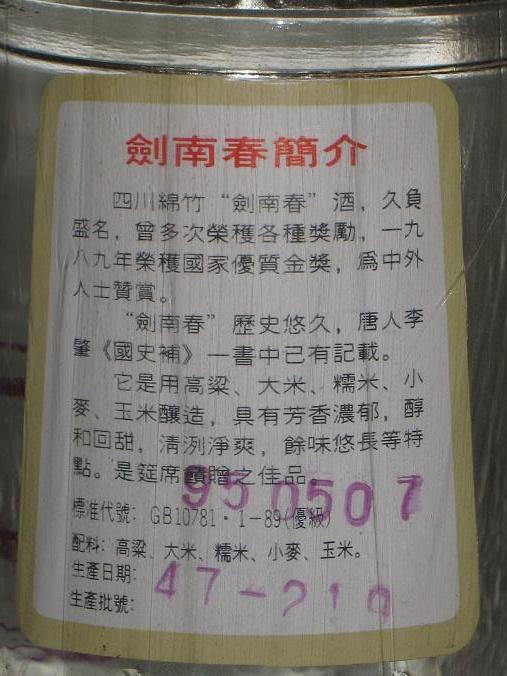 劍南春簡介
四川綿竹“劍南春”酒，久負
盛名，曾多次榮獲各種獎勵，一九
八九年榮獲國家優質金獎，爲中外
人士贊賞。
“劍南春”歷史悠久，唐人李
肇《國史補》一書中已有記載。
它是用高粱、大米、糯米、小
麥、玉米釀造，具有芳香濃郁，醇
和回甜，清洌淨爽，餘味悠長等特
點。是筵席饋贈之佳品。
950507
標准代號：GB10781·1-89(優級)
配料：高粱、大米、糯米、小麥、玉米。
生產日期：
47-210
生產批號：